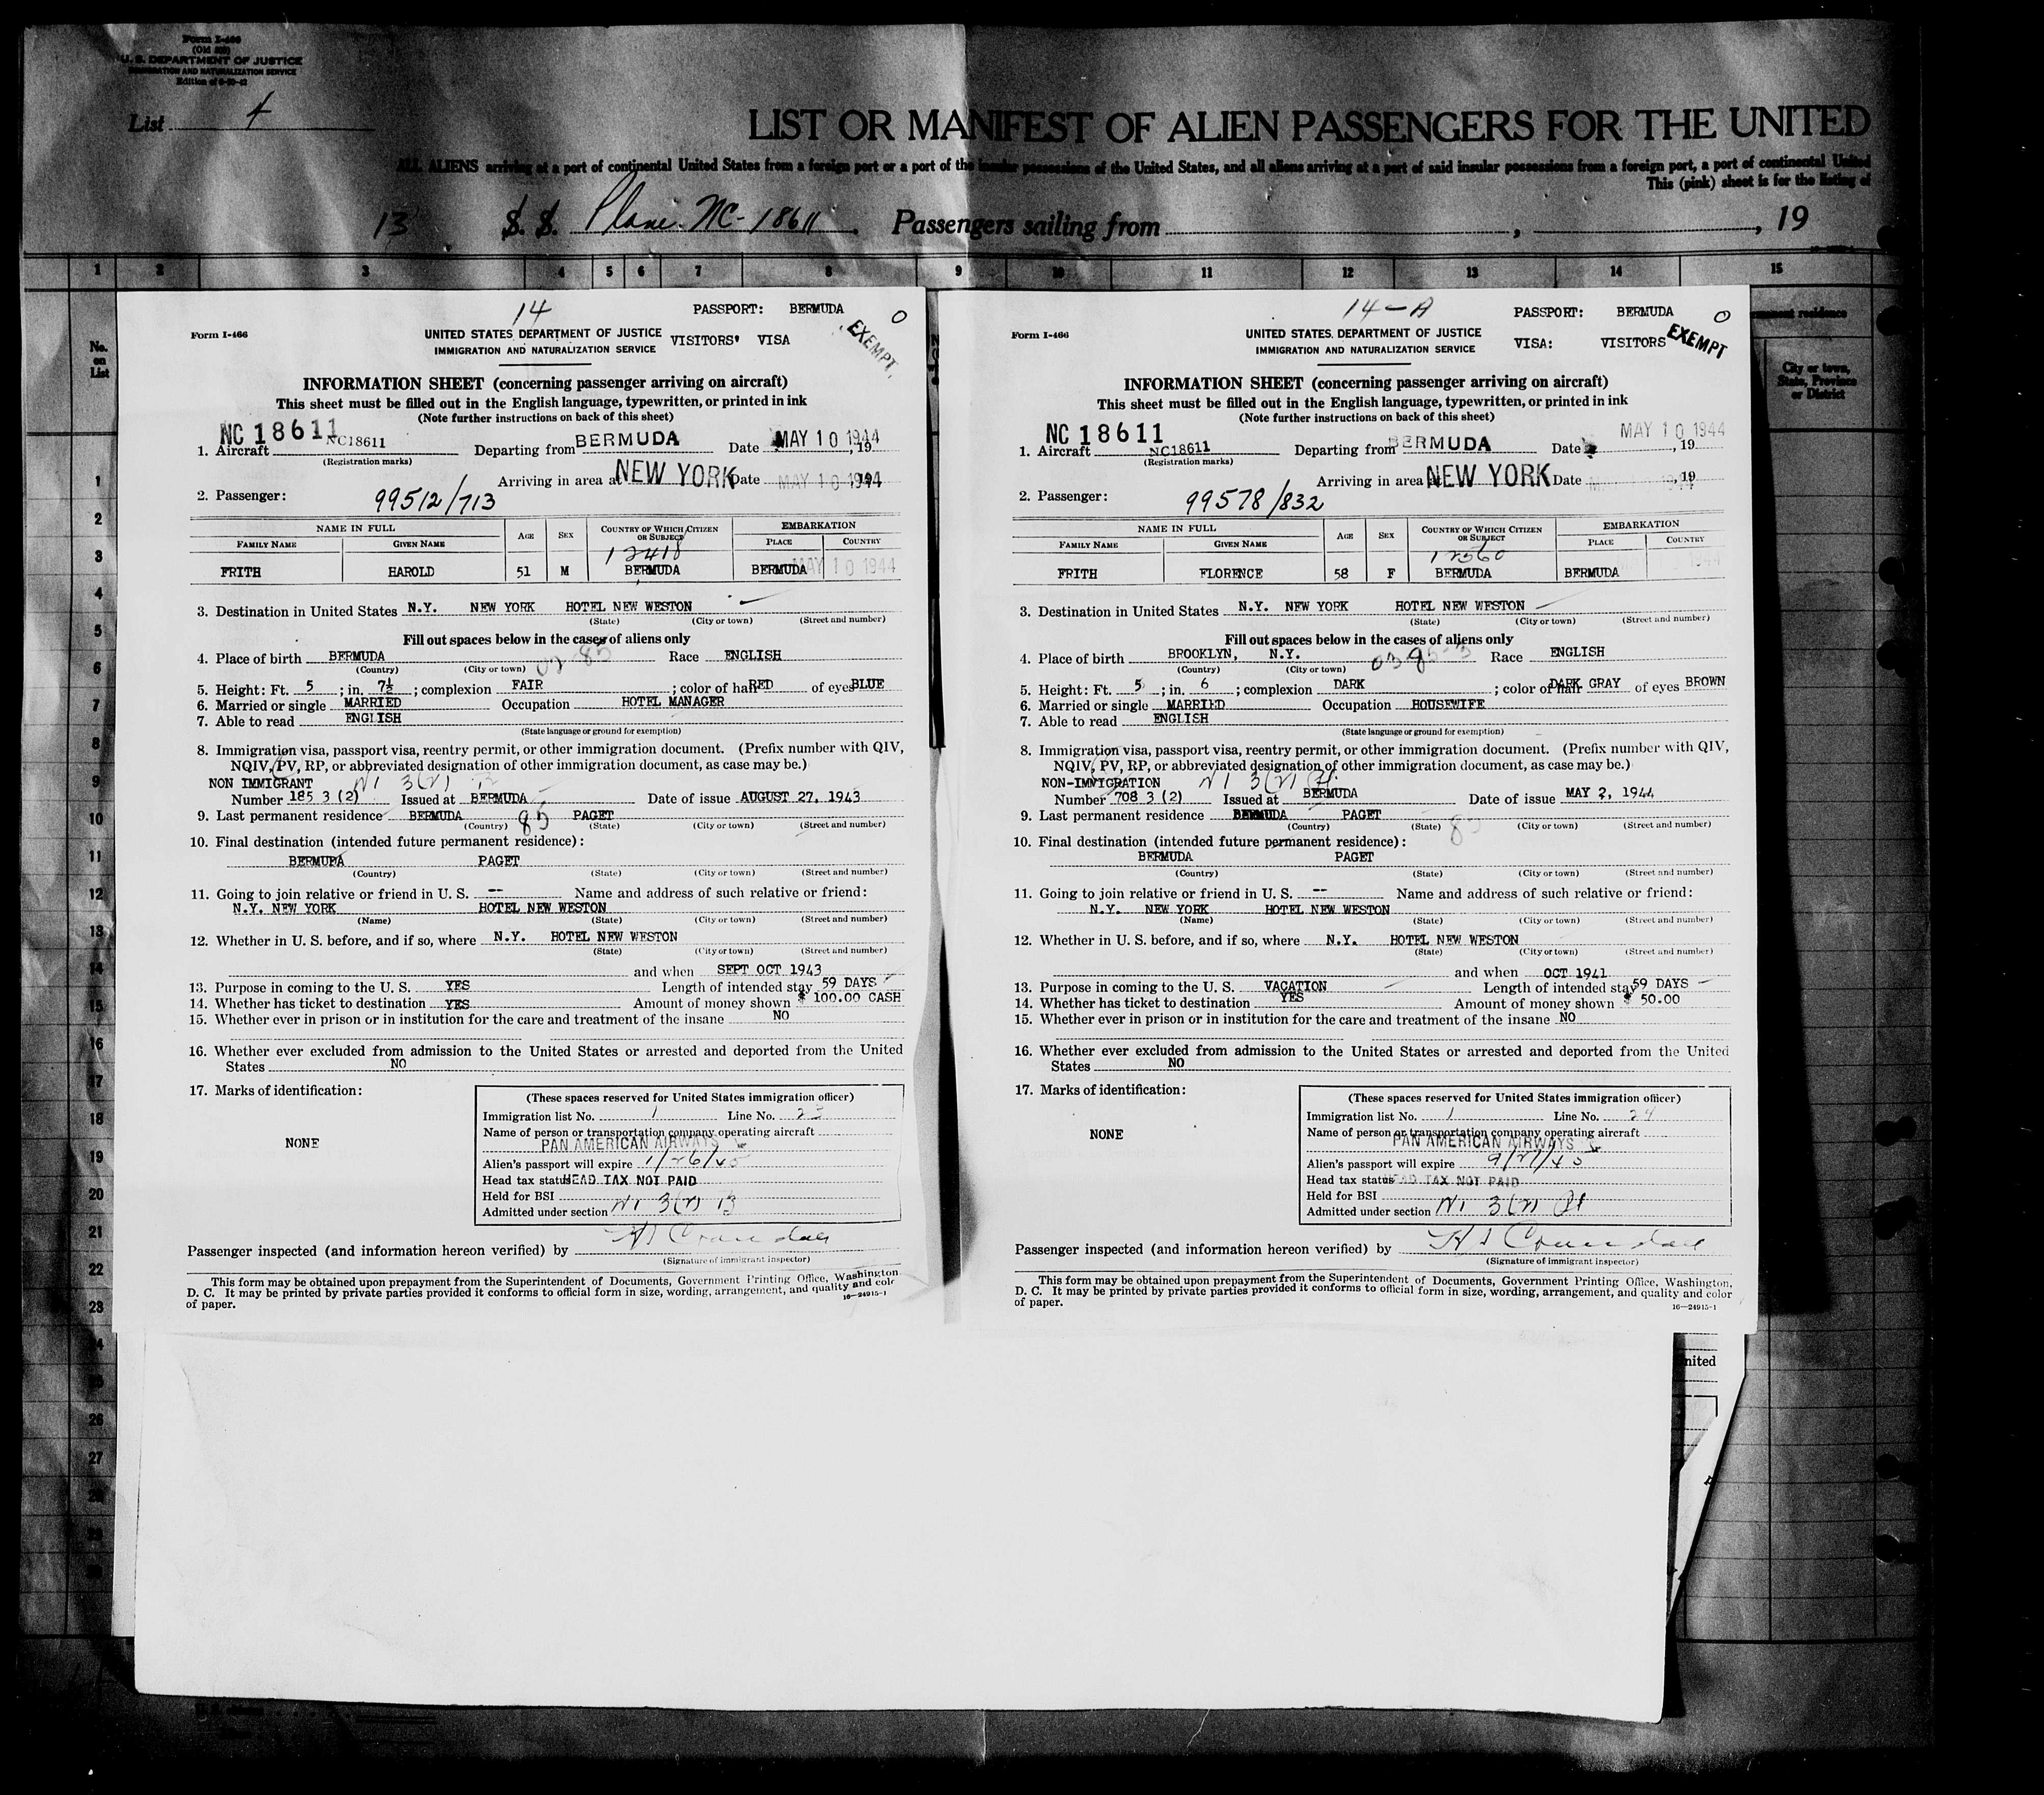 Form I-466
(Old 500)
U. S. DEPARTMENT OF JUSTICE
IMMIGRATION AND NATURALIZATION SERVICE
List 4
LIST OR MANIFEST OF ALIEN PASSENGERS FOR THE UNITED
ALL ALIENS arriving at a port of continental United States from a foreign port or a port of the insular possessions of the United States, and all aliens arriving at a port of said insular possessions from a foreign port, a port of continental United
This (pink) sheet is for the listing of
13 S. S. Plane NC-18611 Passengers sailing from , , 19
1 2 3 4 5 6 7 8 9 10 11 12 13 14 15
No. on List
permanent residence
City or town, State, Province or District
1
2
3
4
5
6
7
8
9
10
11
12
13
14
15
16
17
18
19
20
21
22
23
24
25
26
27
28
29
30
14 PASSPORT: BERMUDA O
Form I-466
UNITED STATES DEPARTMENT OF JUSTICE
IMMIGRATION AND NATURALIZATION SERVICE
VISITORS' VISA
EXEMPT
INFORMATION SHEET (concerning passenger arriving on aircraft)
This sheet must be filled out in the English language, typewritten, or printed in ink
(Note further instructions on back of this sheet)
NC 18611
1. Aircraft NC18611 Departing from BERMUDA Date MAY 10 1944, 19
(Registration marks)
Arriving in area at NEW YORK Date MAY 10 1944 19
2. Passenger: 99512/713
NAME IN FULL AGE SEX COUNTRY OF WHICH CITIZEN OR SUBJECT EMBARKATION
FAMILY NAME GIVEN NAME PLACE COUNTRY
12418
FRITH HAROLD 51 M BERMUDA BERMUDA MAY 10 1944
3. Destination in United States N.Y. NEW YORK HOTEL NEW WESTON
(State) (City or town) (Street and number)
Fill out spaces below in the cases of aliens only
4. Place of birth BERMUDA Race ENGLISH
(Country) (City or town)
5. Height: Ft. 5 ; in. 7½ ; complexion FAIR ; color of hair RED of eyes BLUE
6. Married or single MARRIED Occupation HOTEL MANAGER
7. Able to read ENGLISH
(State language or ground for exemption)
8. Immigration visa, passport visa, reentry permit, or other immigration document. (Prefix number with QIV,
NQIV, PV, RP, or abbreviated designation of other immigration document, as case may be.)
NON IMMIGRANT NI 3(2)
Number 185 3 (2) Issued at BERMUDA Date of issue AUGUST 27, 1943
9. Last permanent residence BERMUDA 85 PAGET
(Country) (State) (City or town) (Street and number)
10. Final destination (intended future permanent residence):
BERMUDA PAGET
(Country) (State) (City or town) (Street and number)
11. Going to join relative or friend in U. S. -- Name and address of such relative or friend:
N.Y. NEW YORK HOTEL NEW WESTON
(Name) (State) (City or town) (Street and number)
12. Whether in U. S. before, and if so, where N.Y. HOTEL NEW WESTON
(State) (City or town) (Street and number)
and when SEPT OCT 1943
13. Purpose in coming to the U. S. YES Length of intended stay 59 DAYS
14. Whether has ticket to destination YES Amount of money shown $ 100.00 CASH
15. Whether ever in prison or in institution for the care and treatment of the insane NO
16. Whether ever excluded from admission to the United States or arrested and deported from the United
States NO
17. Marks of identification:
NONE
(These spaces reserved for United States immigration officer)
Immigration list No. 1 Line No. 23
Name of person or transportation company operating aircraft
PAN AMERICAN AIRWAYS
Alien's passport will expire 1/26/45
Head tax status HEAD TAX NOT PAID
Held for BSI
Admitted under section NI 3(2) B
Passenger inspected (and information hereon verified) by H S Crandall
(Signature of immigrant inspector)
This form may be obtained upon prepayment from the Superintendent of Documents, Government Printing Office, Washington
D. C. It may be printed by private parties provided it conforms to official form in size, wording, arrangement, and quality and color
of paper. 16—24915-1
14-A PASSPORT: BERMUDA O
Form I-466
UNITED STATES DEPARTMENT OF JUSTICE
IMMIGRATION AND NATURALIZATION SERVICE
VISA: VISITORS
EXEMPT
INFORMATION SHEET (concerning passenger arriving on aircraft)
This sheet must be filled out in the English language, typewritten, or printed in ink
(Note further instructions on back of this sheet)
NC 18611 MAY 10 1944
1. Aircraft NC18611 Departing from BERMUDA Date , 19
(Registration marks)
Arriving in area at NEW YORK Date , 19
2. Passenger: 99578/832
NAME IN FULL AGE SEX COUNTRY OF WHICH CITIZEN OR SUBJECT EMBARKATION
FAMILY NAME GIVEN NAME PLACE COUNTRY
12560
FRITH FLORENCE 58 F BERMUDA BERMUDA
3. Destination in United States N.Y. NEW YORK HOTEL NEW WESTON
(State) (City or town) (Street and number)
Fill out spaces below in the cases of aliens only
4. Place of birth BROOKLYN, N.Y. Race ENGLISH
(Country) (City or town)
5. Height: Ft. 5 ; in. 6 ; complexion DARK ; color of hair DARK GRAY of eyes BROWN
6. Married or single MARRIED Occupation HOUSEWIFE
7. Able to read ENGLISH
(State language or ground for exemption)
8. Immigration visa, passport visa, reentry permit, or other immigration document. (Prefix number with QIV,
NQIV, PV, RP, or abbreviated designation of other immigration document, as case may be.)
NON-IMMIGRATION NI 3(2)
Number 708 3 (2) Issued at BERMUDA Date of issue MAY 2, 1944
9. Last permanent residence BERMUDA PAGET
(Country) (State) (City or town) (Street and number)
10. Final destination (intended future permanent residence):
BERMUDA PAGET
(Country) (State) (City or town) (Street and number)
11. Going to join relative or friend in U. S. -- Name and address of such relative or friend:
N.Y. NEW YORK HOTEL NEW WESTON
(Name) (State) (City or town) (Street and number)
12. Whether in U. S. before, and if so, where N.Y. HOTEL NEW WESTON
(State) (City or town) (Street and number)
and when OCT 1941
13. Purpose in coming to the U. S. VACATION Length of intended stay 59 DAYS
14. Whether has ticket to destination YES Amount of money shown $ 50.00
15. Whether ever in prison or in institution for the care and treatment of the insane NO
16. Whether ever excluded from admission to the United States or arrested and deported from the United
States NO
17. Marks of identification:
NONE
(These spaces reserved for United States immigration officer)
Immigration list No. 1 Line No. 24
Name of person or transportation company operating aircraft
PAN AMERICAN AIRWAYS
Alien's passport will expire 9/27/45
Head tax status HEAD TAX NOT PAID
Held for BSI
Admitted under section NI 3(2)
Passenger inspected (and information hereon verified) by H S Crandall
(Signature of immigrant inspector)
This form may be obtained upon prepayment from the Superintendent of Documents, Government Printing Office, Washington,
D. C. It may be printed by private parties provided it conforms to official form in size, wording, arrangement, and quality and color
of paper. 16—24915-1
nited